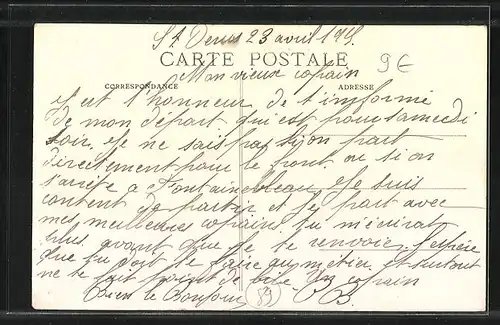 St Denis 23 avril 191
9€
CARTE POSTALE
Mon vieux copain
CORRESPONDANCE ADRESSE
J'ai l'honneur de t'informé
de mon départ qui est pour samedi
soir. Je ne sais pas si on part
directement pour le front ou si on
s'arrête à Fontainebleau. Je suis
content de partir et je part avec
mes meilleures copains tu m'écrirat
plus avant que je te renvoie. J'espère
que tu doit te faire au métier. et surtout
ne te fait point de bile. Un copain
Bien le Bonjour B.